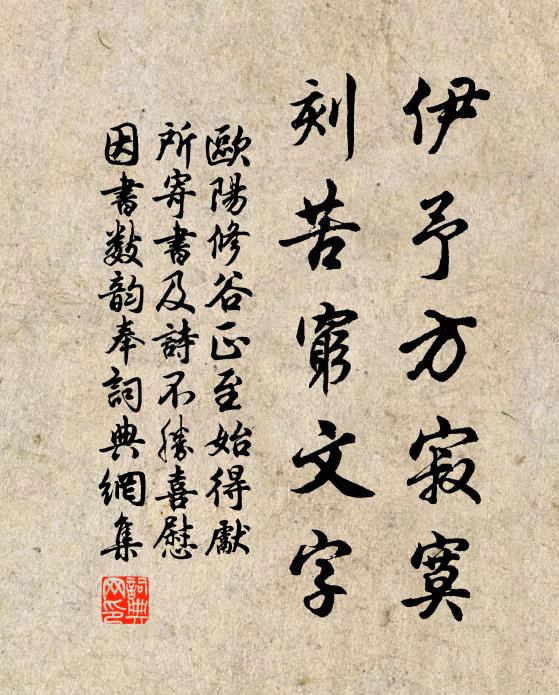 伊予方寂寞
刻苦窮文字
歐陽修谷正至始得獻
所寄書及詩不勝喜慰
因書數韵奉詞典網集
詞典网印